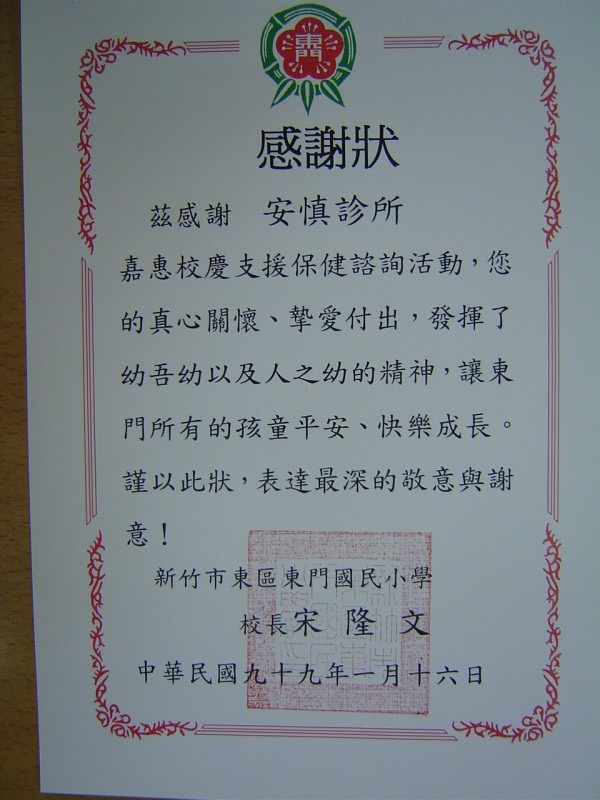 東門
感謝狀
茲感謝 安慎診所
嘉惠校慶支援保健諮詢活動，您
的真心關懷、摯愛付出，發揮了
幼吾幼以及人之幼的精神，讓東
門所有的孩童平安、快樂成長。
謹以此狀，表達最深的敬意與謝
意！
新竹市東區東門國民小學
校長宋隆文
中華民國九十九年一月十六日